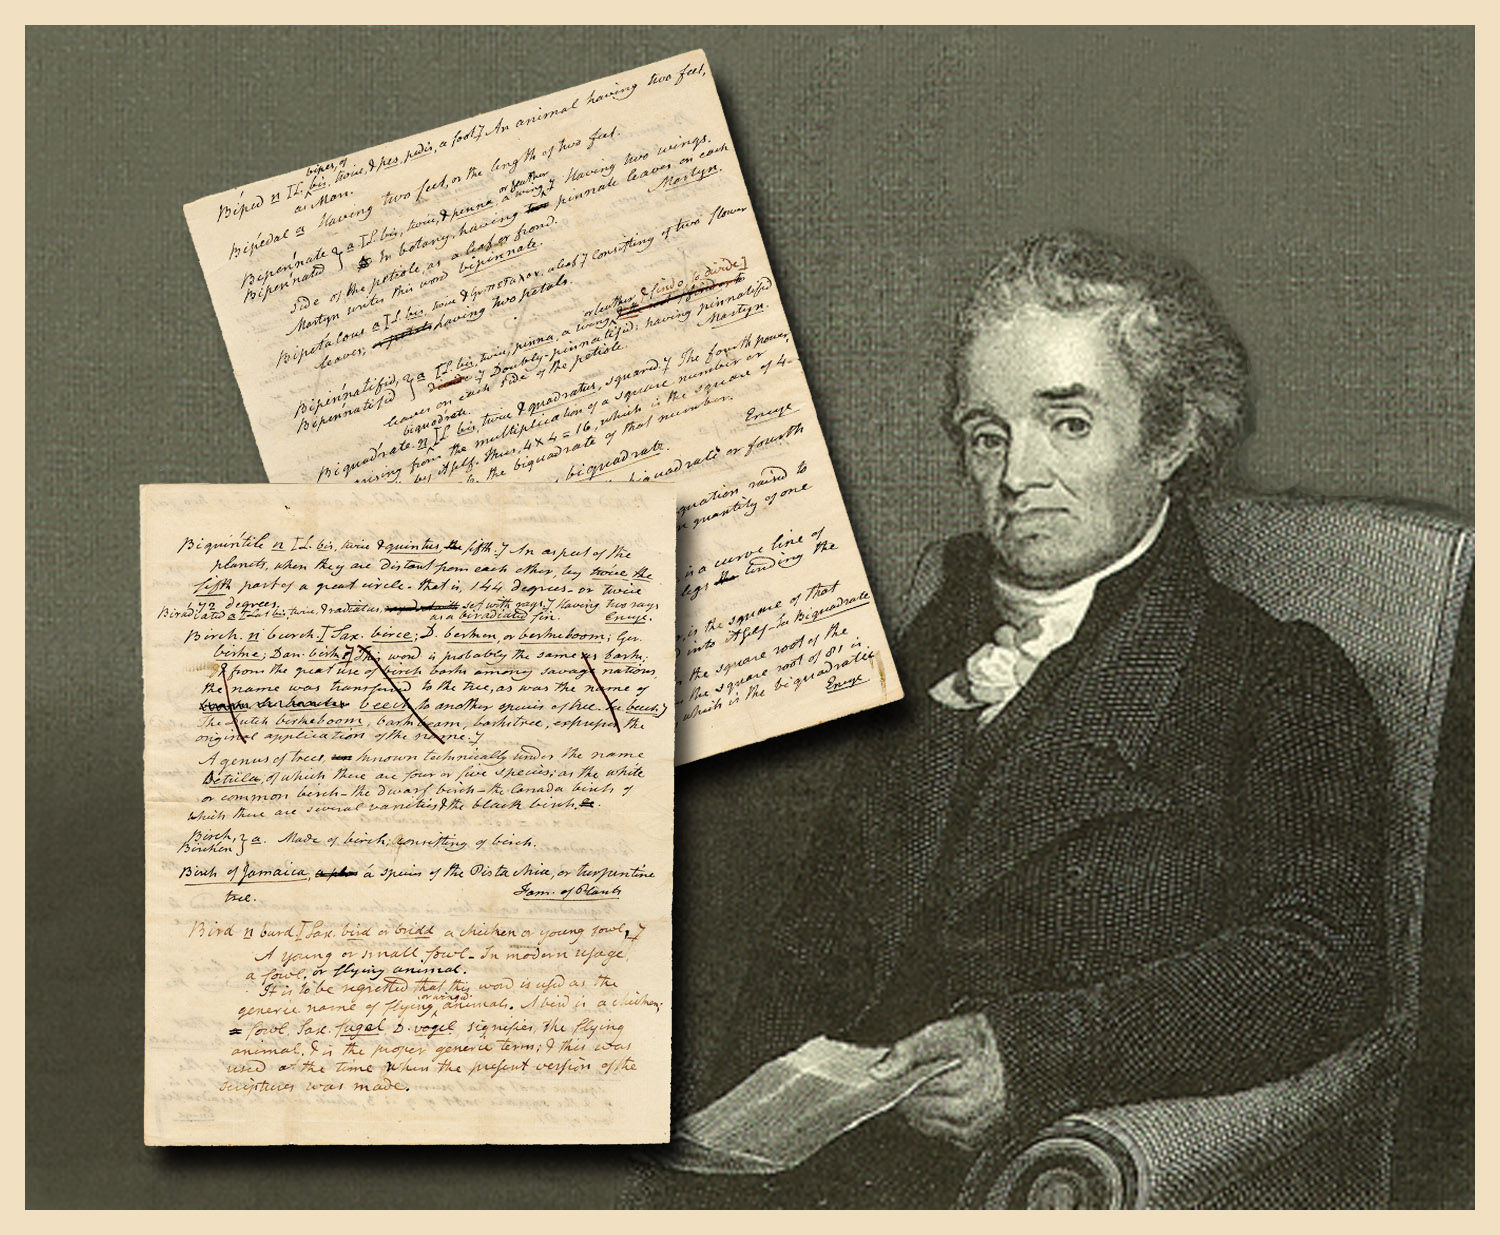 bipes, of
Biped n [L. bis, twice, & pes, pedis, a foot.] An animal having two feet,
as Man.
Bipedal a Having two feet, or the length of two feet.
or feather
Bipen'nate } a [L. bis, twice, & penna, a wing.] Having two wings.
Bipen'nated } In botany, having two pinnate leaves on each
side of the petiole, as a leaf or frond. Martyn.
Martyn writes this word bipinnate.
Bipetalous a [L. bis, twice & a leaf.] Consisting of two flower
leaves; having two petals.
or feather, & findo, to divide.]
Bipen'natifid, } a [L. bis, twice, pinna, a wing
Bipin'natifid } Doubly-pinnatifid; having pinnatifid
leaves on each side of the petiole. Martyn.
biquadrate.
Biquad'rate. n [L. bis, twice & quadratus, squared.] The fourth power,
arising from the multiplication of a square number or
by itself. Thus, 4x4=16, which is the square of 4
the biquadrate of that number. Encyc
biquadrate.
biquadratic or fourth
equation raised to
quantity of one
is a curve line of
legs tending the
is the square of that
into itself. See Biquadrate
the square root of the
the square root of 81 is
which is the biquadratic
Encyc
Biquintile n [L. bis, twice & quintus, the fifth.] An aspect of the
planets, when they are distant from each other, by twice the
fifth part of a great circle - that is, 144 degrees - or twice
72 degrees.
Birad'iated a [L. bis, twice, & radiatus, set with rays.] Having two rays
as a biradiated fin. Encyc.
Birch. n burch. [Sax. birce; D. berken, or berkeboom; Ger.
birke; Dan. birk.] This word is probably the same as bark;
& from the great use of birch bark among savage nations,
the name was transferred to the tree, as was the name of
beech to another species of tree. See beech.]
The Dutch berkeboom, bark-beam, bark-tree, expresses the
original application of the name.]
A genus of trees, known technically under the name
Betula, of which there are four or five species; as the white
or common birch - the dwarf birch - the Canada birch of
which there are several varieties & the black birch.
Birch, } a. Made of birch; consisting of birch.
Birchen }
Birch of Jamaica, a species of the Pistachia, or turpentine
tree. Fam. of Plants
Bird n burd [Sax. bird or bridd a chicken or young fowl.]
A young or small fowl - In modern usage,
a fowl, or flying animal.
It is to be regretted that this word is used as the
or winged
generic name of flying animals. A bird is a chicken;
fowl, Sax. fugel D. vogel, signifies, the flying
animal, & is the proper generic term; & this was
used at the time when the present version of the
scriptures was made.